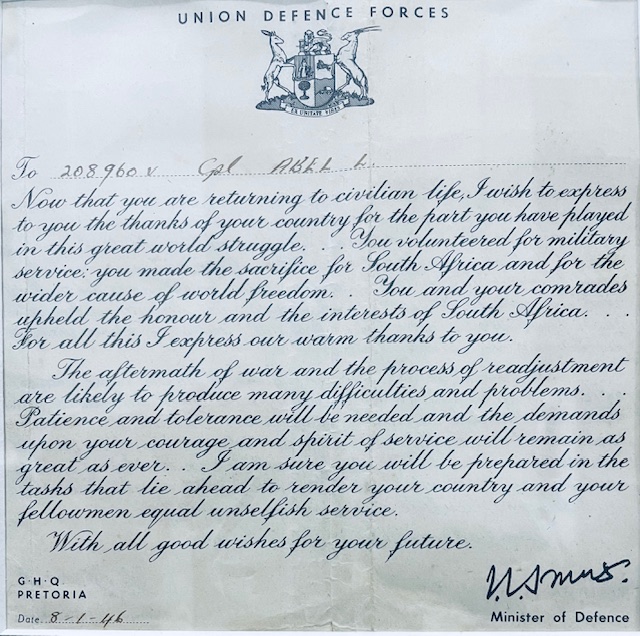 UNION DEFENCE FORCES
EX UNITATE VIRES
To 208960.V Cpl ABEL L.
Now that you are returning to civilian life, I wish to express
to you the thanks of your country for the part you have played
in this great world struggle. . . You volunteered for military
service: you made the sacrifice for South Africa and for the
wider cause of world freedom. . You and your comrades
upheld the honour and the interests of South Africa. . .
For all this I express our warm thanks to you.
The aftermath of war and the process of readjustment
are likely to produce many difficulties and problems. . .
Patience and tolerance will be needed and the demands
upon your courage and spirit of service will remain as
great as ever. . I am sure you will be prepared in the
tasks that lie ahead to render your country and your
fellowmen equal unselfish service.
With all good wishes for your future.
G·H·Q·
PRETORIA
Date 8-1-46
J.C. Smuts.
Minister of Defence